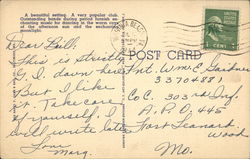 A beautiful setting. A very popular club.
Outstanding bands during period furnish en-
chanting music for dancing in the warm rays
of the afternoon sun and the enchanting
moonlight.
POST CARD
Dear Bill:
This is strictly
G. I. down here
But I like
it. Take care
of yourself, I
will write later
Love
Marg.
Pvt. Wm. E. Gardner
33704881
Co C. 303rd Inf.
A.P.O. 445
Fort Leonard
Wood
Mo.